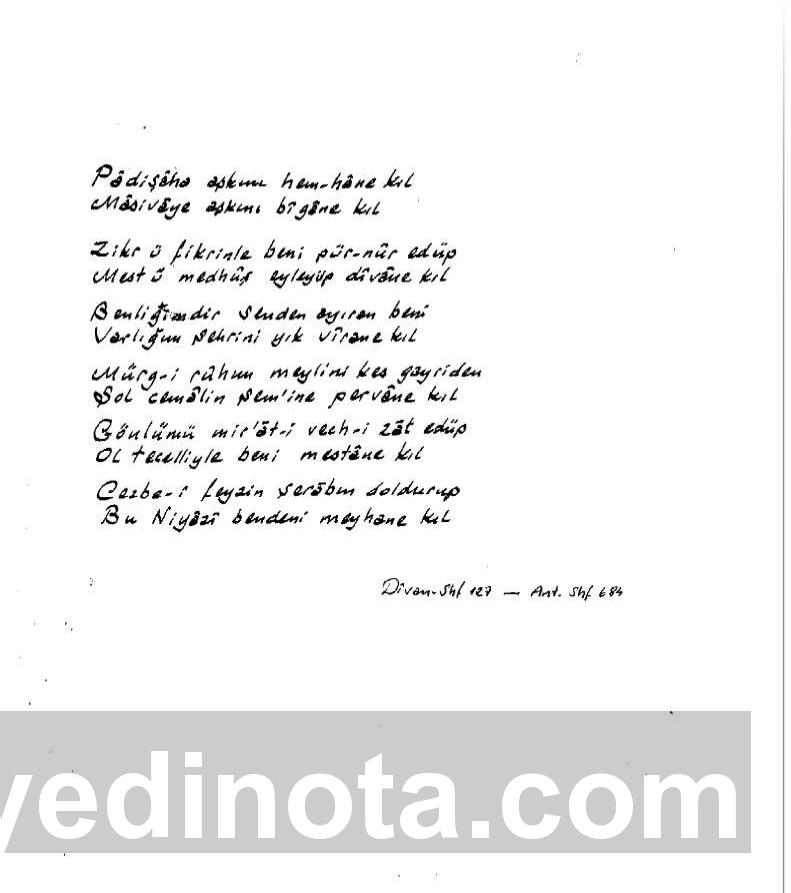 Pâdişâha aşkını hem-hâne kıl
Mâsivâye aşkını bîgâne kıl
Zikr ü fikrinle beni pür-nûr edüp
Mest ü medhûş eyleyüp dîvâne kıl
Benliğimdir senden ayıran beni
Varlığım şehrini yık vîrane kıl
Mürg-i rûhum meylini kes gayriden
Şol cemâlin şem'ine pervâne kıl
Gönlümü mir'ât-i vech-i zât edüp
Ol tecelliyle beni mestâne kıl
Cezbe-i feyzin şerâbın doldurup
Bu Niyâzî bendeni meyhane kıl
Dîvan-Shf 127 — Ant. Shf 684
yedinota.com